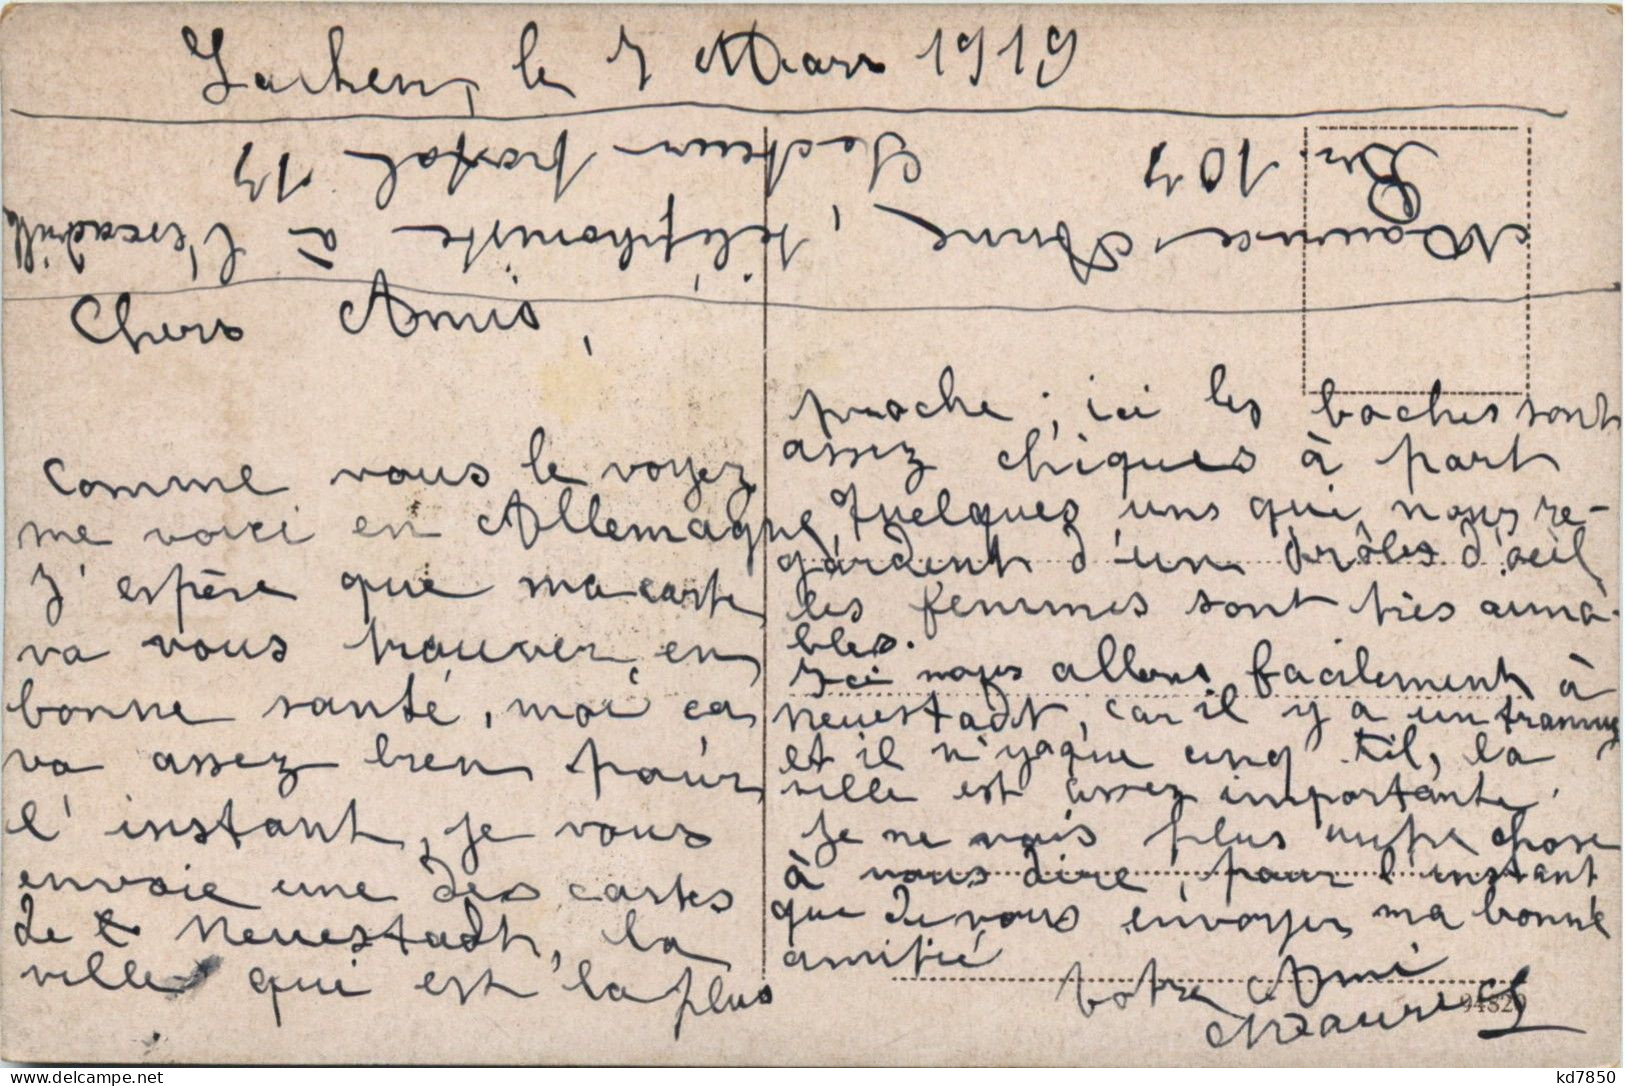 Lachen, le 7 Mars 1919
Maurice Anne, téléphoniste à l'escadrille
Br. 107 Secteur postal 17
Chers Amis,
Comme vous le voyez
me voici en Allemagne,
J'espère que ma carte
va vous trouver en
bonne santé, moi ca
va assez bien pour
l'instant, je vous
envoie une des cartes
de Neuestadt, la
ville qui est la plus
proche ; ici les boches sont
assez chiques à part
quelques uns qui nous re-
gardent d'un drôles d'oeil
les femmes sont très aima-
bles.
Ici nous allons facilement à
Neuestadt, car il y a un tramway
et il n'yaque cinq Kil, la
ville est assez importante.
Je ne vois plus autre chose
à vous dire, pour l'instant
que de vous envoyer ma bonne
amitié
Votre Ami
Maurice
94820
kd7850